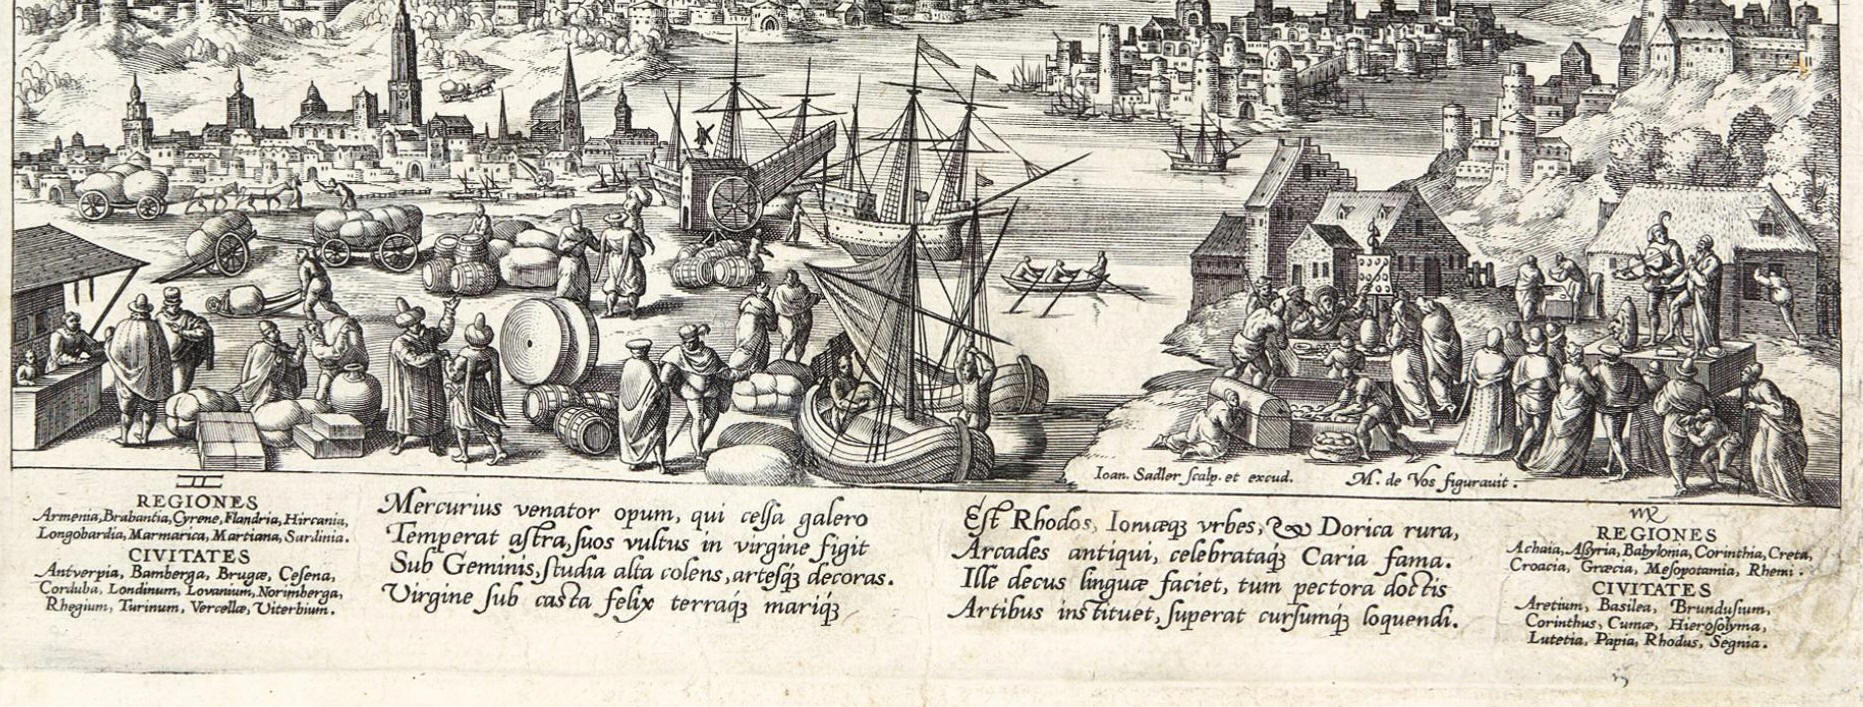 Ioan. Sadler scalp. et excud.
M. de Vos figurauit.
♊
REGIONES
Armenia, Brabantia, Cyrene, Flandria, Hircania,
Longobardia, Marmarica, Martiana, Sardinia.
CIVITATES
Antverpia, Bamberga, Brugæ, Cesena,
Corduba, Londinum, Lovanium, Norimberga,
Rhegium, Turinum, Vercellæ, Viterbium.
Mercurius venator opum, qui celſa galero
Temperat aſtra, ſuos vultus in virgine figit
Sub Geminis, ſtudia alta colens, arteſq́ꝫ decoras.
Virgine ſub caſta felix terraq́ꝫ mariq́ꝫ
Eſt Rhodos, Ionıæqꝫ vrbes, & Dorica rura,
Arcades antiqui, celebrataqꝫ Caria fama.
Ille decus linguæ faciet, tum pectora doctis
Artibus instituet, ſuperat curſumq́ꝫ loquendi.
♍
REGIONES
Achaia, Aſſyria, Babylonia, Corinthia, Creta,
Croacia, Græcia, Meſopotamia, Rhemi.
CIVITATES
Aretium, Basilea, Brunduſium,
Corinthus, Cumæ, Hieroſolyma,
Lutetia, Papia, Rhodus, Segnia.